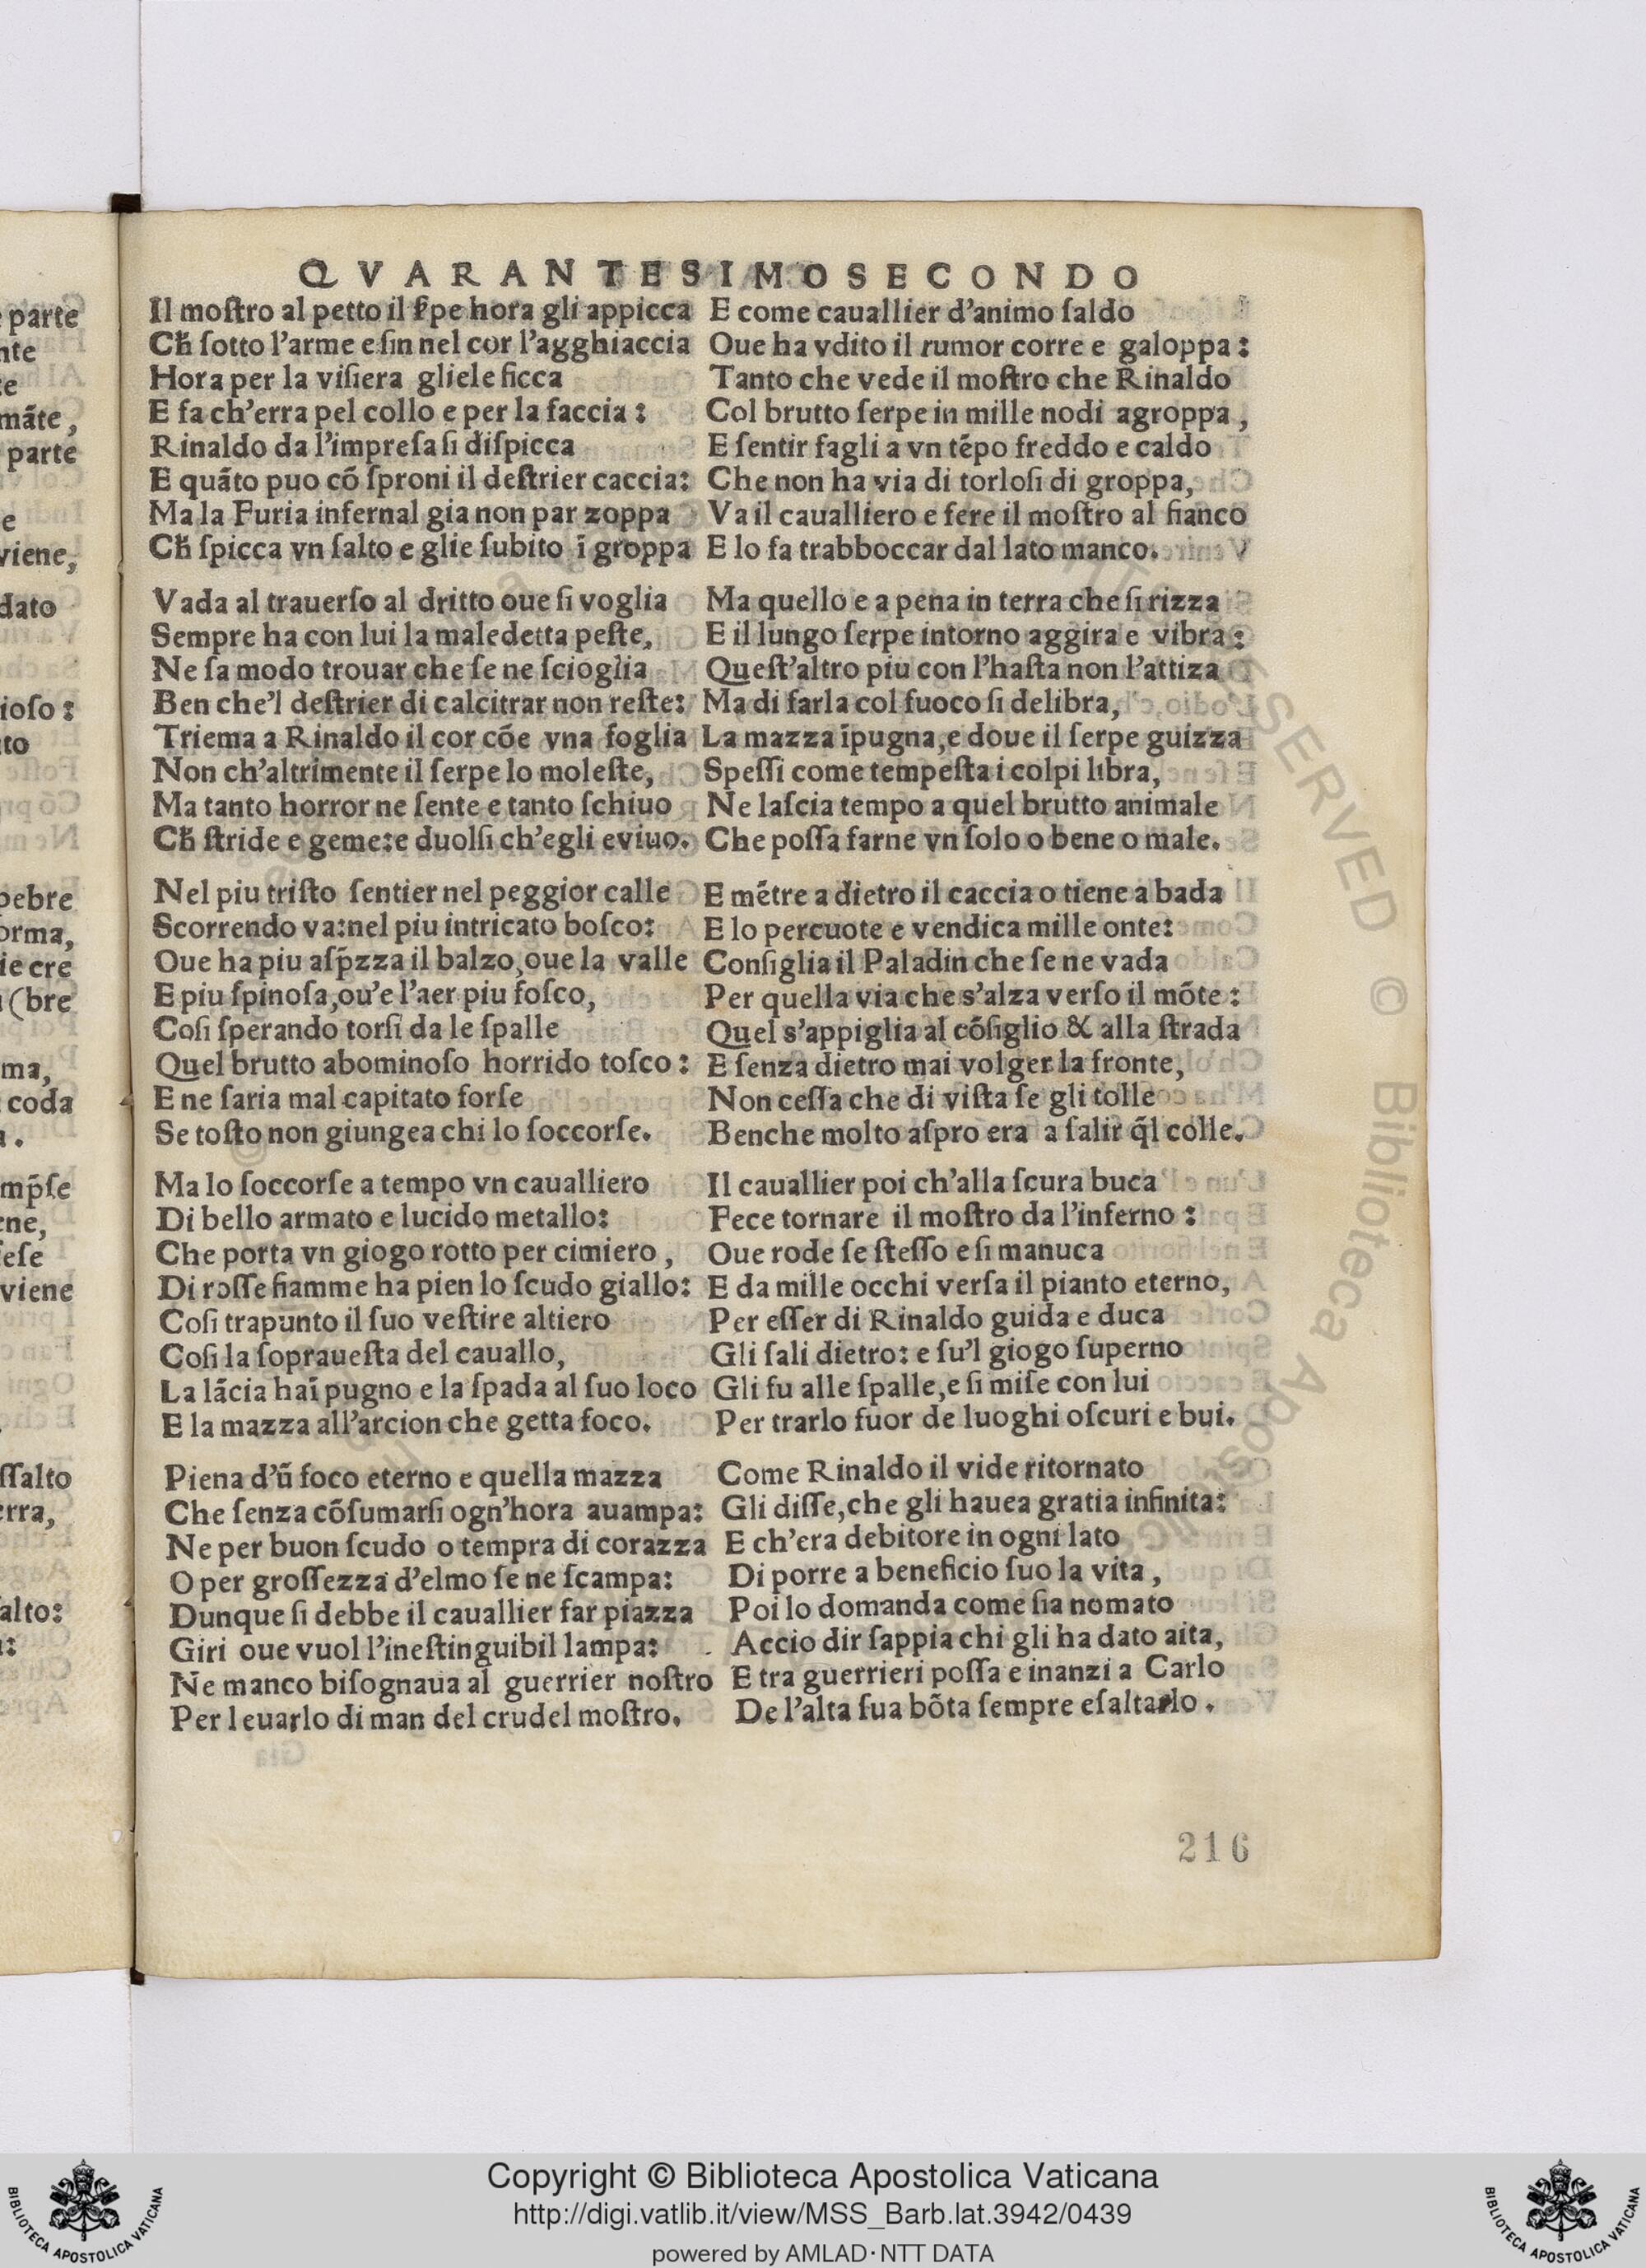 QVARANTESIMOSECONDO
Il moſtro al petto il ſ̃pe hora gli appicca
Ch̃ ſotto l'arme e ſin nel cor l'agghiaccia
Hora per la viſiera gliele ficca
E fa ch'erra pel collo e per la faccia:
Rinaldo da l'impreſa ſi diſpicca
E quãto puo cõ ſproni il deſtrier caccia:
Ma la Furia infernal gia non par zoppa
Ch̃ ſpicca vn ſalto e glie ſubito ĩ groppa
Vada al trauerſo al dritto oue ſi voglia
Sempre ha con lui la maledetta peſte,
Ne ſa modo trouar che ſe ne ſcioglia
Ben che'l deſtrier di calcitrar non reſte:
Triema a Rinaldo il cor cõe vna foglia
Non ch'altrimente il ſerpe lo moleſte,
Ma tanto horror ne ſente e tanto ſchiuo
Ch̃ ſtride e geme:e duolſi ch'egli eviuo.
Nel piu triſto ſentier nel peggior calle
Scorrendo va:nel piu intricato boſco:
Oue ha piu aſp̃zza il balzo,oue la valle
E piu ſpinoſa,ou'e l'aer piu foſco,
Coſi ſperando torſi da le ſpalle
Quel brutto abominoſo horrido toſco:
E ne ſaria mal capitato forſe
Se toſto non giungea chi lo ſoccorſe.
Ma lo ſoccorſe a tempo vn caualliero
Di bello armato e lucido metallo:
Che porta vn giogo rotto per cimiero,
Di roſſe fiamme ha pien lo ſcudo giallo:
Coſi trapunto il ſuo veſtire altiero
Coſi la ſoprauеſta del cauallo,
La lãcia haĩ pugno e la ſpada al ſuo loco
E la mazza all'arcion che getta foco.
Piena d'ũ foco eterno e quella mazza
Che ſenza cõſumarſi ogn'hora auampa:
Ne per buon ſcudo o tempra di corazza
O per groſſezza d'elmo ſe ne ſcampa:
Dunque ſi debbe il cauallier far piazza
Giri oue vuol l'ineſtinguibil lampa:
Ne manco biſognaua al guerrier noſtro
Per leuarlo di man del crudel moſtro.
E come cauallier d'animo ſaldo
Oue ha vdito il rumor corre e galoppa:
Tanto che vede il moſtro che Rinaldo
Col brutto ſerpe in mille nodi agroppa,
E ſentir fagli a vn tẽpo freddo e caldo
Che non ha via di torloſi di groppa,
Va il caualliero e fere il moſtro al fianco
E lo fa trabboccar dal lato manco.
Ma quello e a pena in terra che ſi rizza
E il lungo ſerpe intorno aggira e vibra:
Queſt'altro piu con l'haſta non l'attiza
Ma di farla col fuoco ſi delibra,
La mazza ĩpugna,e doue il ſerpe guizza
Speſſi come tempeſta i colpi libra,
Ne laſcia tempo a quel brutto animale
Che poſſa farne vn ſolo o bene o male.
E mẽtre a dietro il caccia o tiene a bada
E lo percuote e vendica mille onte:
Conſiglia il Paladin che ſe ne vada
Per quella via che s'alza verſo il mõte:
Quel s'appiglia al cõſiglio & alla ſtrada
E ſenza dietro mai volger la fronte,
Non ceſſa che di viſta ſe gli tolle
Benche molto aſpro era a ſalir q̃l colle.
Il cauallier poi ch'alla ſcura buca
Fece tornare il moſtro da l'inferno:
Oue rode ſe ſteſſo e ſi manuca
E da mille occhi verſa il pianto eterno,
Per eſſer di Rinaldo guida e duca
Gli ſali dietro: e ſu'l giogo ſuperno
Gli fu alle ſpalle,e ſi miſe con lui
Per trarlo fuor de luoghi oſcuri e bui.
Come Rinaldo il vide ritornato
Gli diſſe,che gli hauea gratia infinita:
E ch'era debitore in ogni lato
Di porre a beneficio ſuo la vita,
Poi lo domanda come ſia nomato
Accio dir ſappia chi gli ha dato aita,
E tra guerrieri poſſa e inanzi a Carlo
De l'alta ſua bõta ſempre eſaltarlo.
216
Copyright © Biblioteca Apostolica Vaticana
http://digi.vatlib.it/view/MSS_Barb.lat.3942/0439
powered by AMLAD·NTT DATA
BIBLIOTECA APOSTOLICA VATICANA
BIBLIOTECA APOSTOLICA VATICANA